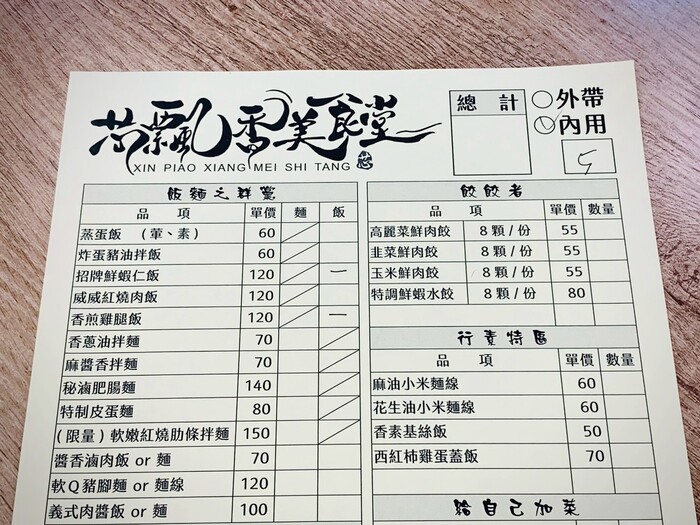 芯飄香美食堂
XIN PIAO XIANG MEI SHI TANG
總 計
外帶
內用
5
飯麵之群黨
品 項 單價 麵 飯
蒸蛋飯 (葷、素) 60
炸蛋豬油拌飯 60
招牌鮮蝦仁飯 120 一
威威紅燒肉飯 120
香煎雞腿飯 120 一
香蔥油拌麵 70
麻醬香拌麵 70
秘滷肥腸麵 140
特制皮蛋麵 80
(限量) 軟嫩紅燒肋條拌麵 150
醬香滷肉飯 or 麵 70
軟Q豬腳麵 or 麵線 120
義式肉醬飯 or 麵 100
餃餃者
品 項 單價 數量
高麗菜鮮肉餃 8 顆 / 份 55
韭菜鮮肉餃 8 顆 / 份 55
玉米鮮肉餃 8 顆 / 份 55
特調鮮蝦水餃 8 顆 / 份 80
行素特區
品 項 單價 數量
麻油小米麵線 60
花生油小米麵線 60
香素基絲飯 50
西紅柿雞蛋蓋飯 70
給自己加菜